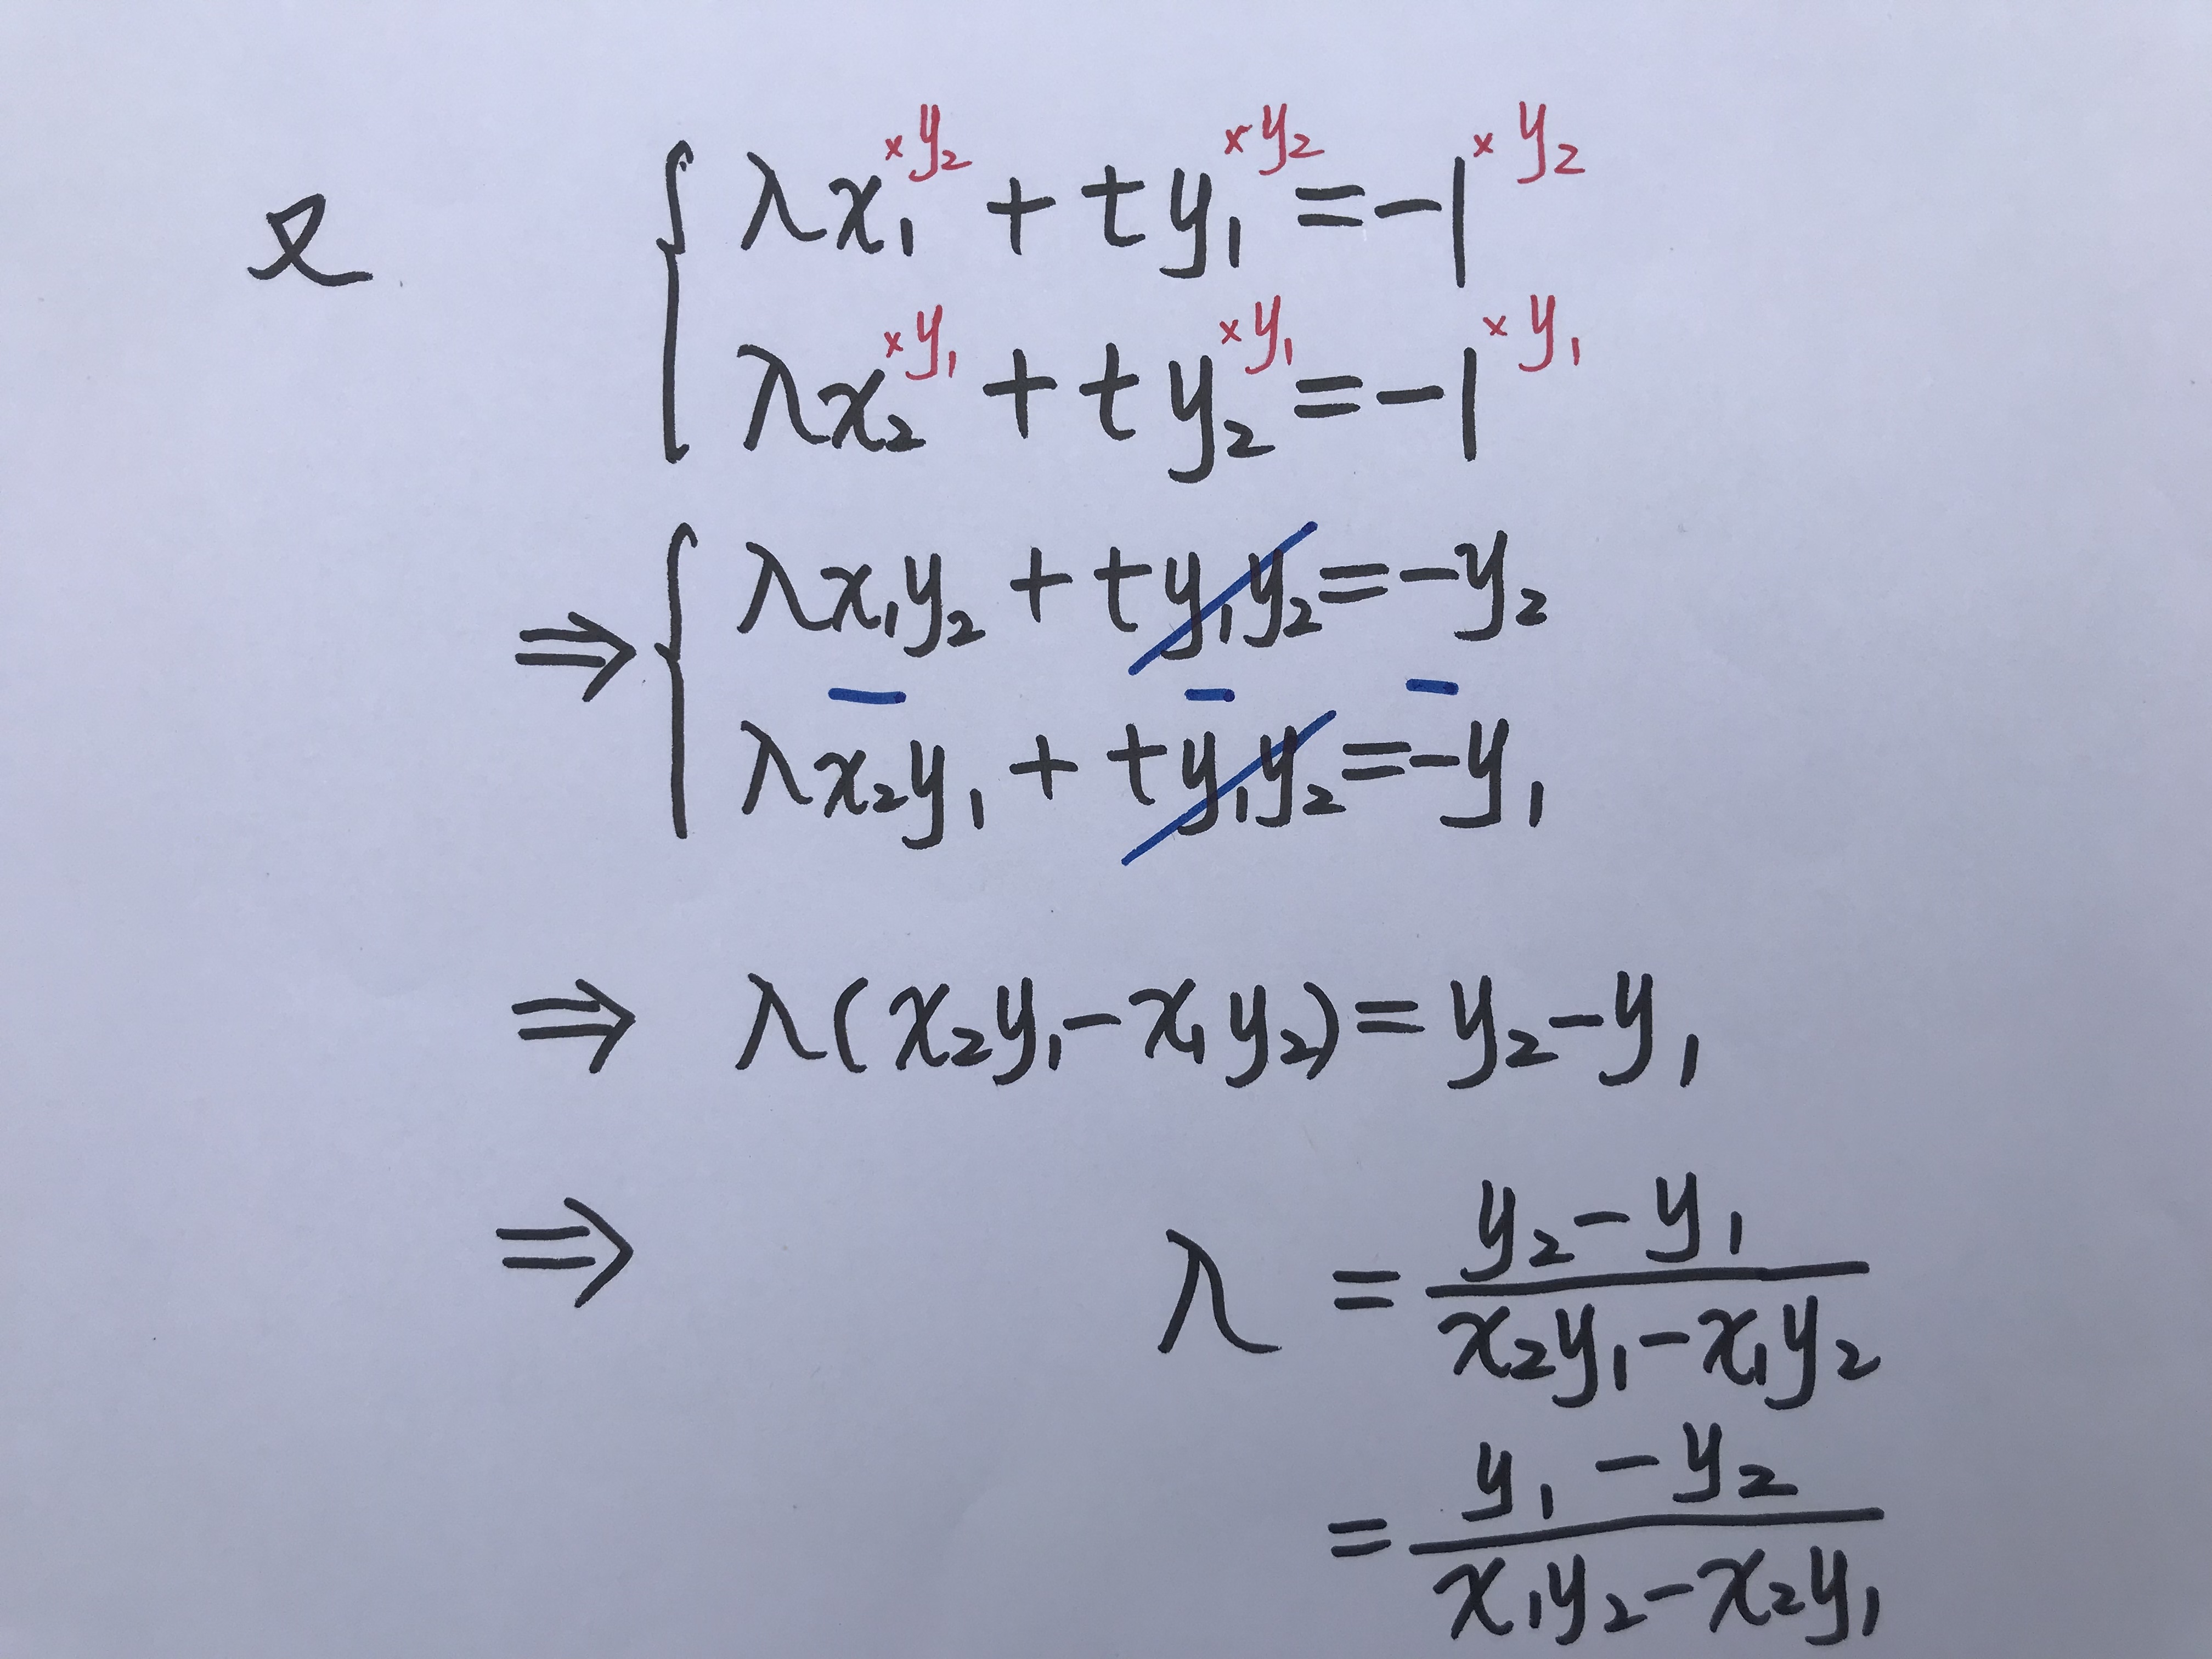 又 { λx₁ ×y₂ + ty₁ ×y₂ = -1 ×y₂
λx₂ ×y₁ + ty₂ ×y₁ = -1 ×y₁
⇒ { λx₁y₂ + ty₁y₂ = -y₂
— — —
λx₂y₁ + ty₁y₂ = -y₁
⇒ λ(x₂y₁ - x₁y₂) = y₂ - y₁
⇒ λ = \frac{y₂ - y₁}{x₂y₁ - x₁y₂}
= \frac{y₁ - y₂}{x₁y₂ - x₂y₁}